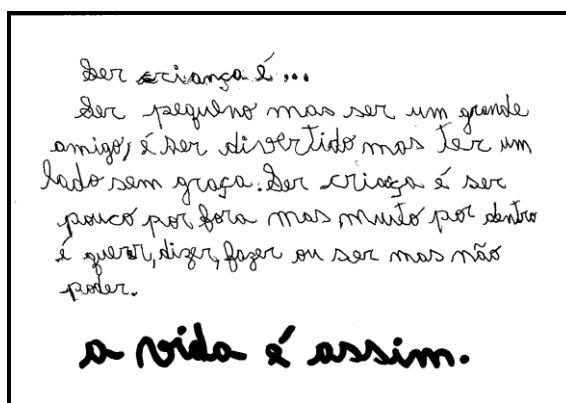 Ser criança é...
Ser pequeno mas ser um grande
amigo, é ser divertido mas ter um
lado sem graça. Ser criaça é ser
pouco por fora mas muito por dentro
é querer, dizer, fazer ou ser mas não
poder.
a vida é assim.